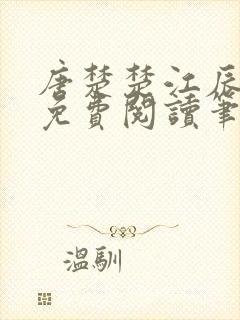 唐楚楚江辰
免費閱讀筆
溫馴